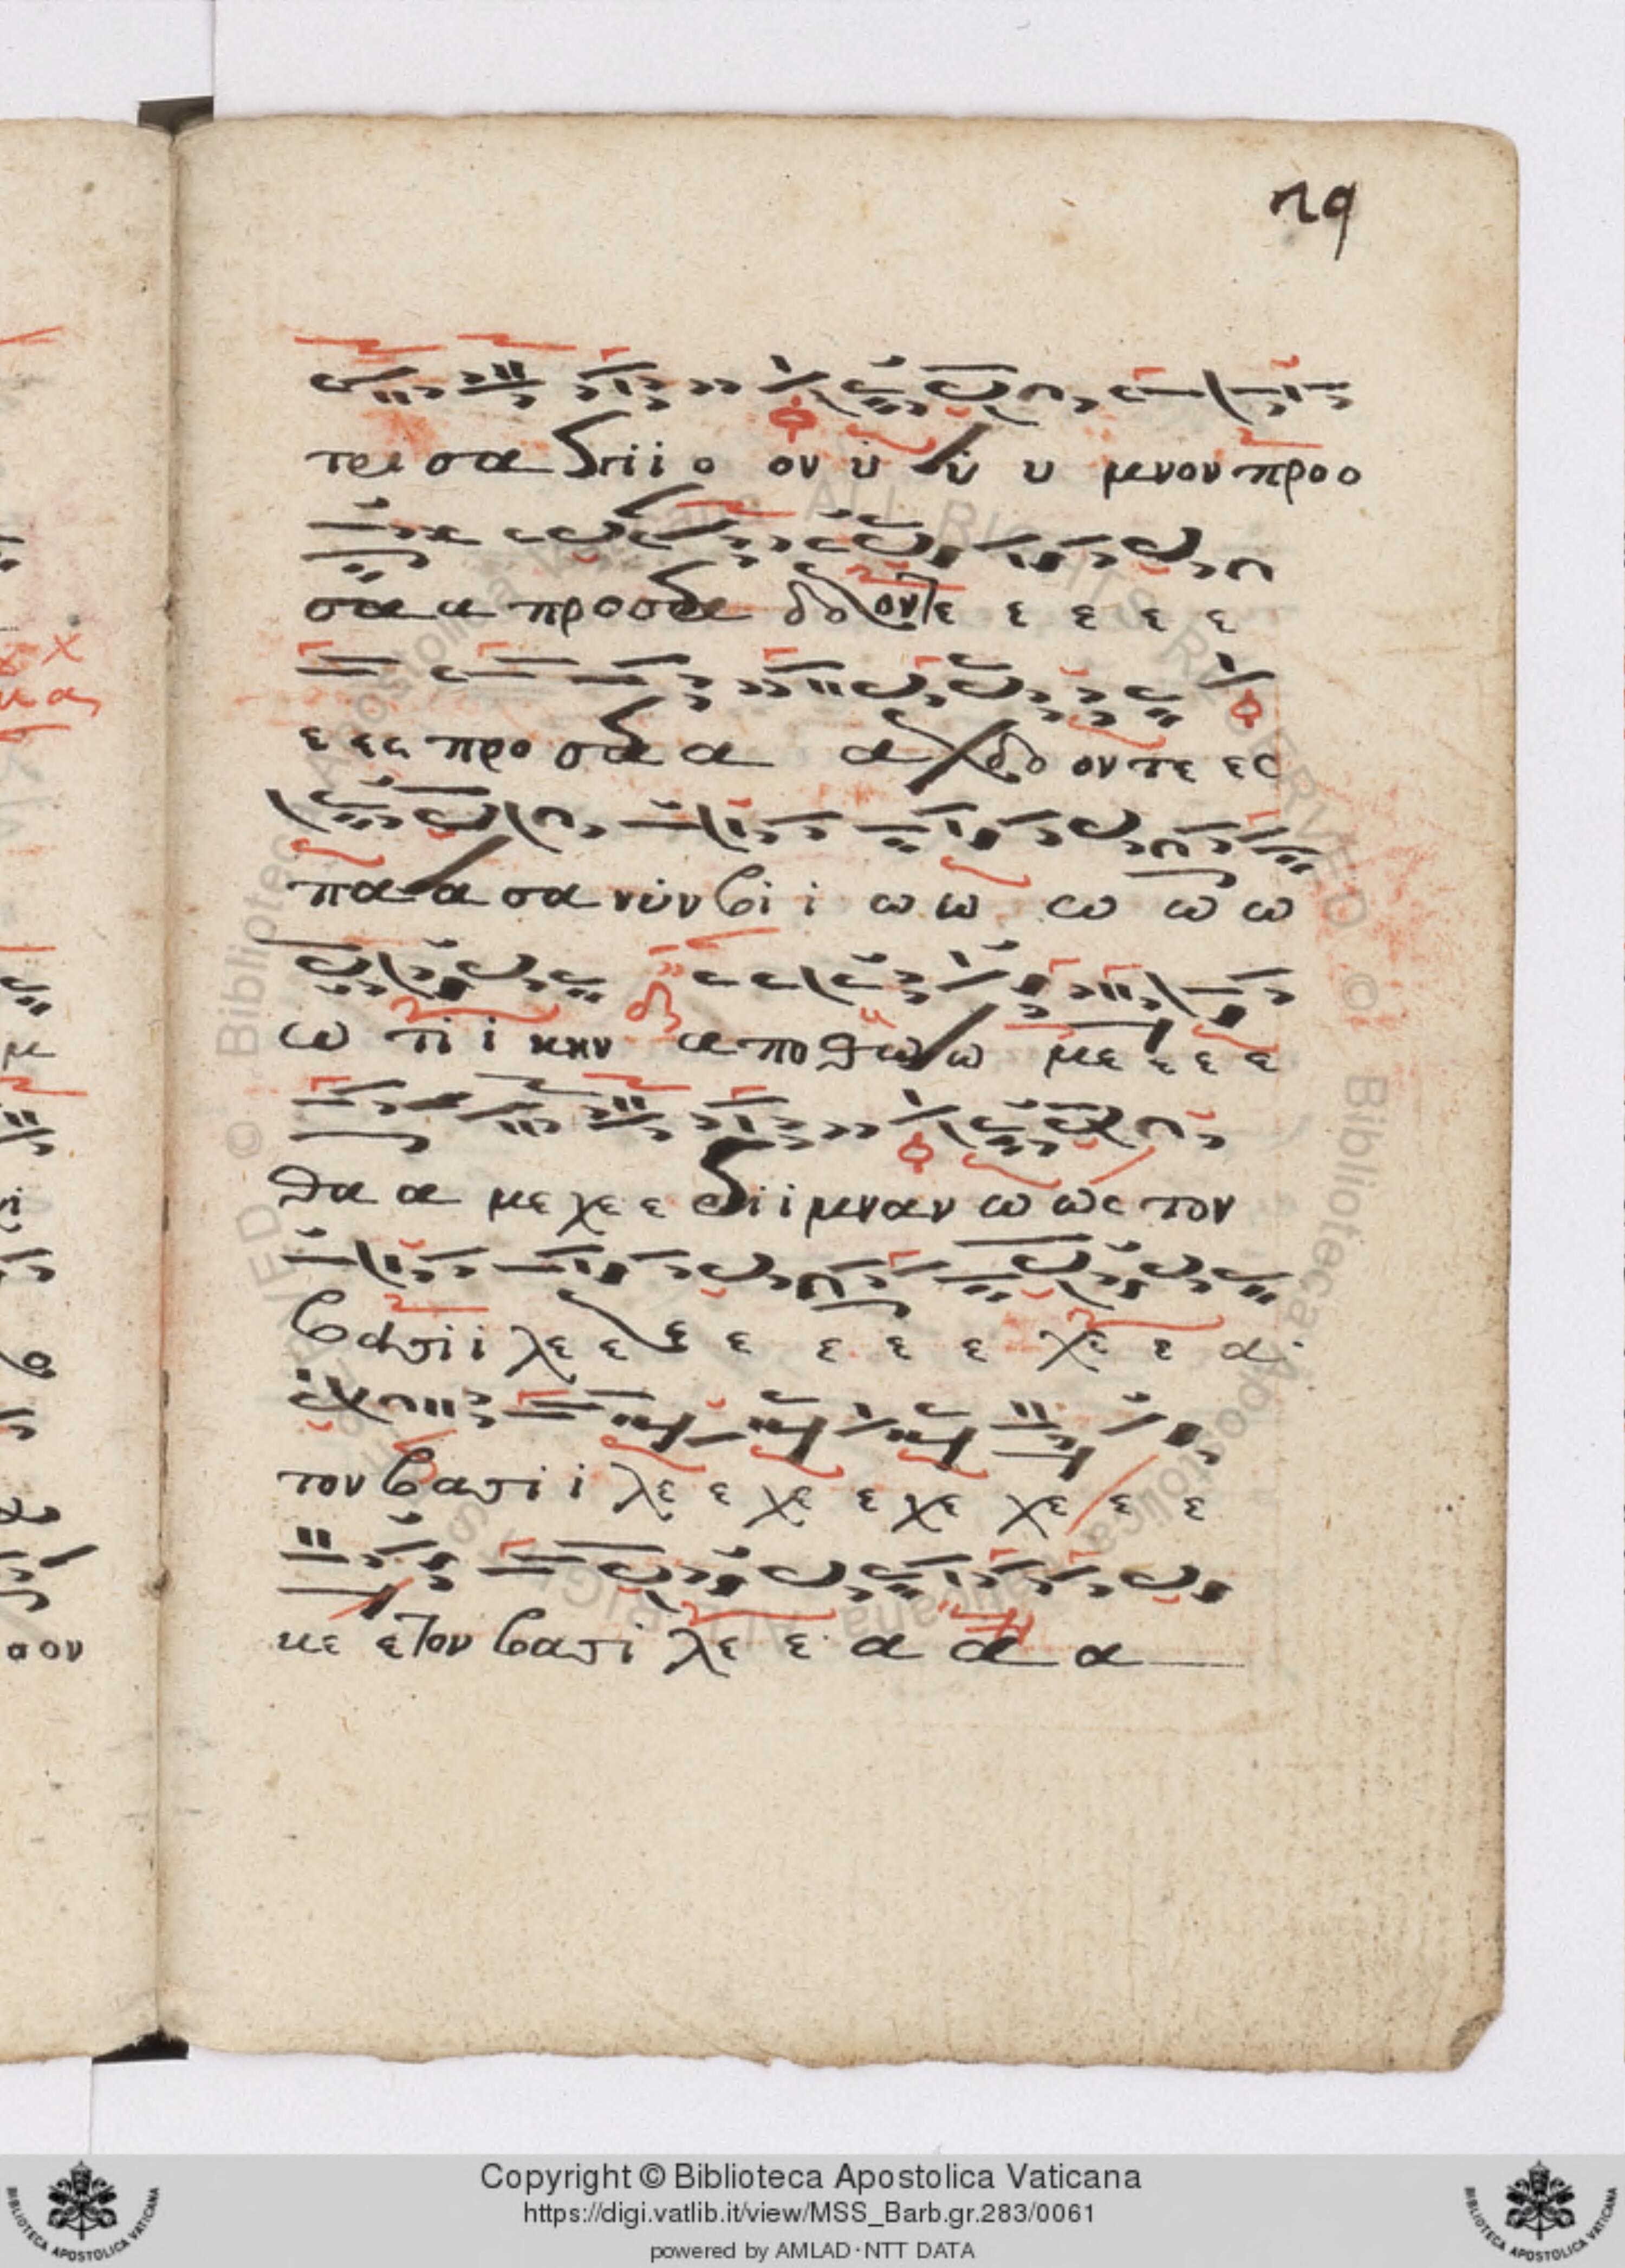 29
τρι σα α γι ι ο ον υ υ υ μνον προ ο
σα α προσα δο οντε ε ε ε ε
ε ες προ σα α α χα δο οντε ες
πα α α σα νυν βι ι ω ω ω ω ω
ω τι ι κην απο θω ω με ε ε ε
θα α με χε ε ρι ι μναν ω ως τον
βα σι ι λε ε ε ε ε ε ε χε ε α
τον βα σι ι λε ε χε ε χε χε ε ε
κε ε τον βα σι λε ε α α α
σον
Copyright © Biblioteca Apostolica Vaticana
https://digi.vatlib.it/view/MSS_Barb.gr.283/0061
powered by AMLAD · NTT DATA